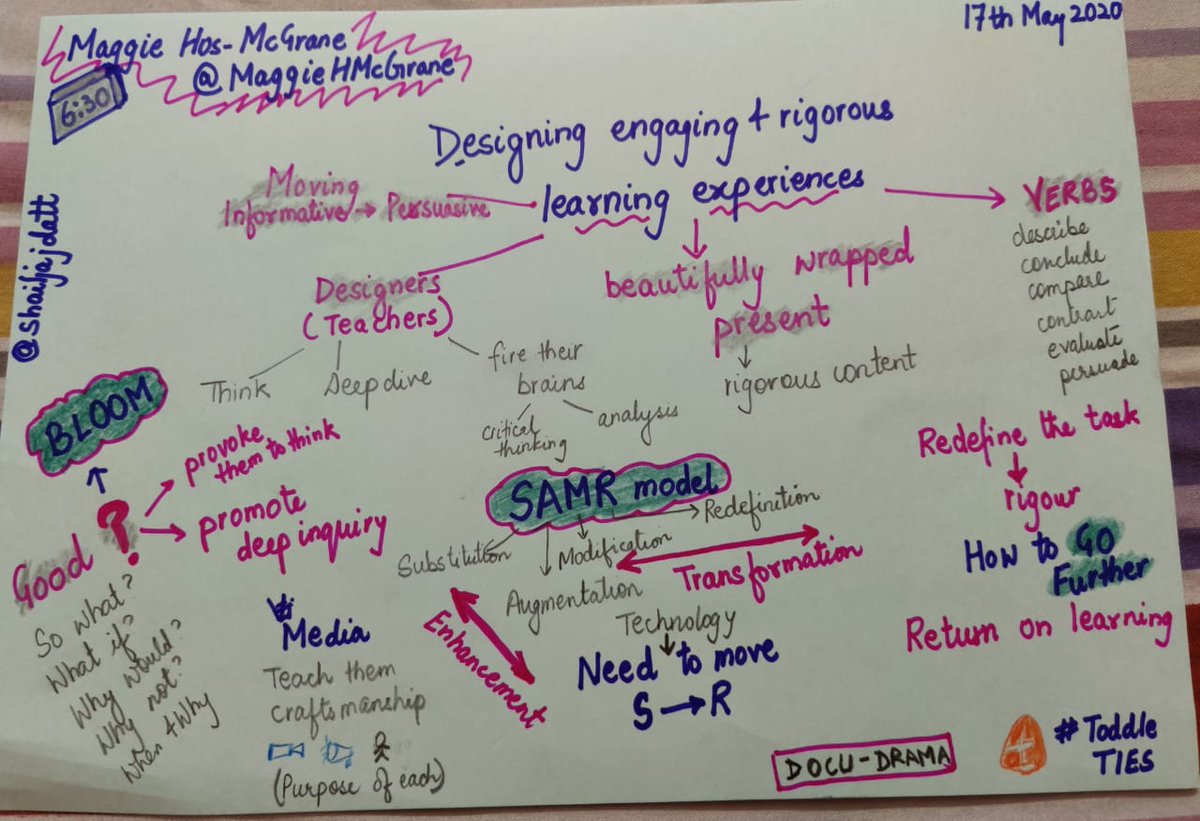 Maggie Hos-McGrane
@MaggieHMcGrane
6:30
17th May 2020
@shailjajdatt
Designing engaging + rigorous
learning experiences
Moving
Informative → Persuasive
VERBS
describe
conclude
compare
contrast
evaluate
persuade
beautifully wrapped
present
rigorous content
Designers
(Teachers)
Think
Deep dive
fire their
brains
critical
thinking
analysis
BLOOM
Good ?
provoke
them to think
promote
deep inquiry
So what?
What if?
Why would?
Why not?
When + Why
SAMR model
Substitution
Augmentation
Modification
Redefinition
Enhancement
Transformation
Technology
Need to move
S → R
Redefine the task
rigour
How to Go
Further
Return on learning
Media
Teach them
craftsmanship
(Purpose of each)
DOCU-DRAMA
#Toddle
TIES